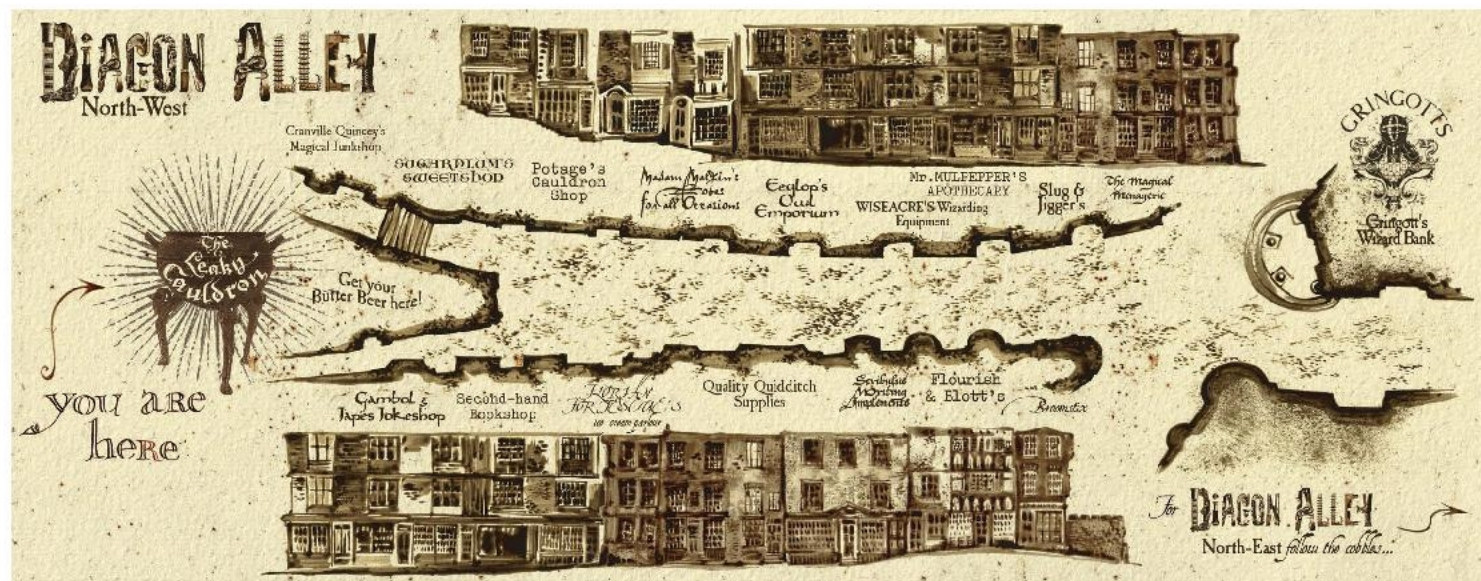 DIAGON ALLEY
North-West
Cranville Quincey's
Magical Junkshop
SUGARPLUM'S
SWEETSHOP
Potage's
Cauldron
Shop
Madam Malkin's
Robes
for all Occasions
Eeylop's
Owl
Emporium
Mr. MULPEPPER'S
APOTHECARY
WISEACRE'S Wizarding
Equipment
Slug &
Jigger's
The Magical
Menagerie
GRINGOTTS
Gringott's
Wizard Bank
The
Leaky
Cauldron
Get your
Butter Beer here!
you are
here
Gambol &
Japes Jokeshop
Second-hand
Bookshop
ice cream parlour
Quality Quidditch
Supplies
Scribulus
Writing
Implements
Flourish
& Blott's
Broomstix
For DIAGON ALLEY
North-East follow the cobbles...